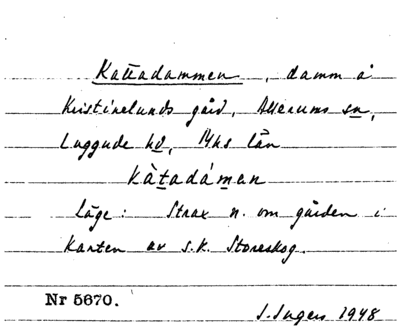 Kattadammen, damm å
Kristinelunds gård, Allerums sn,
Luggude hd, Mhs län
Kàtadámen
Läge: Strax n. om gården i
Kanten av s.k. Storeskog.
Nr 5670.
I. Ingers 1948